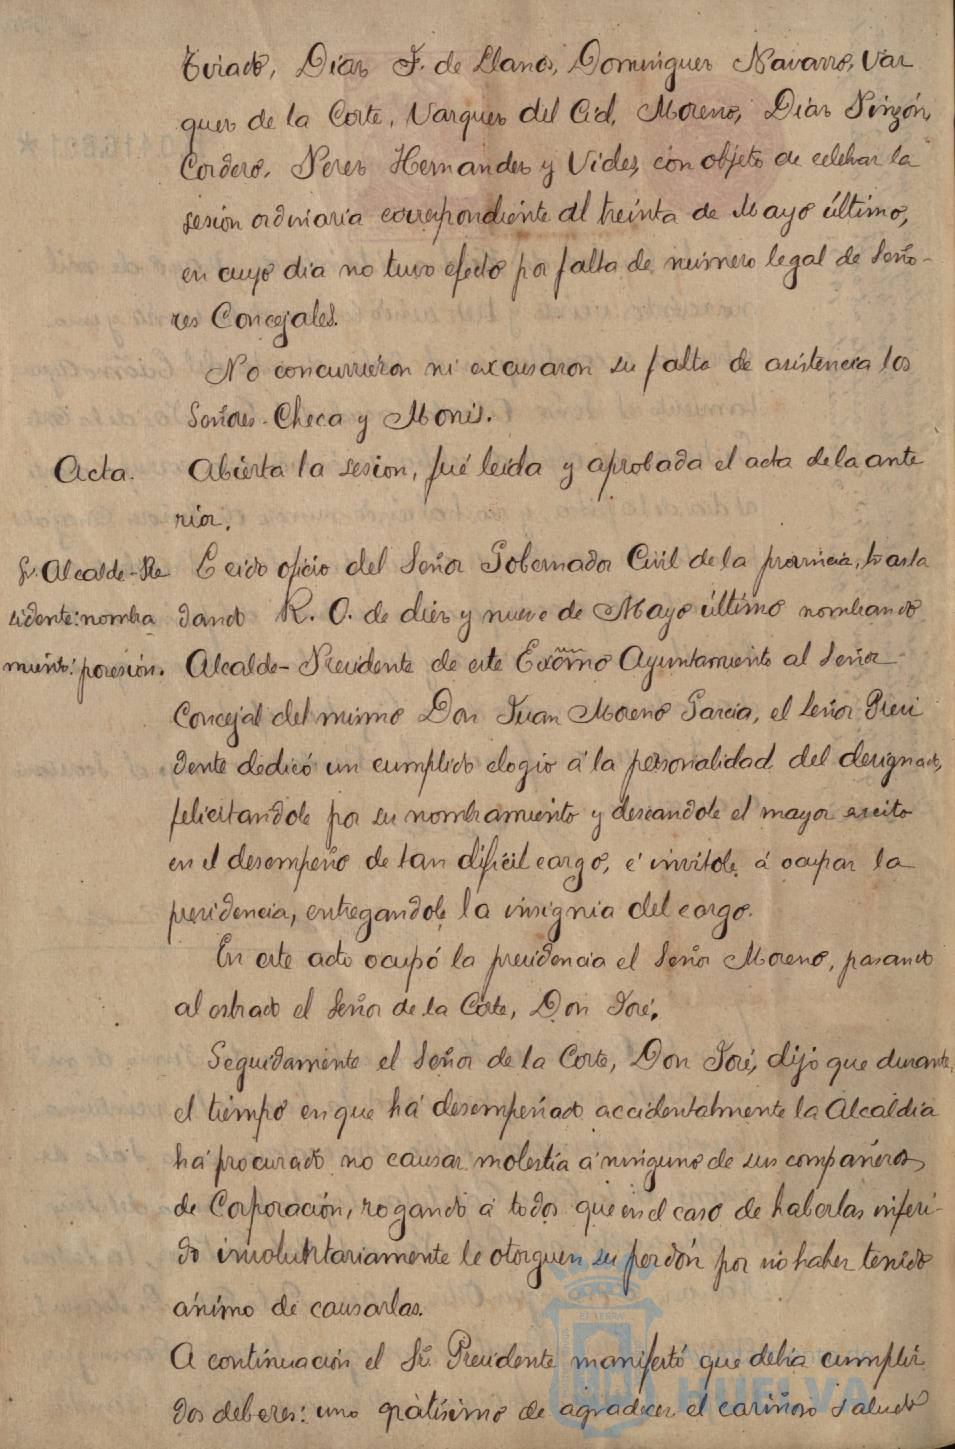 Tirado, Dias F. de Llanos, Domingues Navarro, Var
gues de la Corte, Vargues del Cid, Moreno, Dias Pinzón,
Cordero, Peres Hernandes y Vides, con objeto de celebrar la
sesión ordinaria correspondiente al treinta de Mayo último,
en cuyo dia no tuvo efecto por falta de número legal de Seño-
res Concejales.
No concurrieron ni excusaron su falta de asistencia los
Señores Checa y Monis.
Acta. Abierta la sesion, fué leida y aprobada el acta de la ante
rior.
Sr. Alcalde-Pre
sidente: nombra
miento: posesión.
Leido oficio del Señor Gobernador Civil de la provincia, trasla
dando R. O. de dies y nueve de Mayo último nombrando
Alcalde-Presidente de este Excmo Ayuntamiento al Señor
Concejal del mismo Don Juan Moreno Garcia, el Señor Presi
dente dedicó un cumplido elogio á la personalidad del designado,
felicitandole por su nombramiento y deseandole el mayor escito
en el desempeño de tan dificil cargo, é invitole á ocupar la
presidencia, entregandole la insignia del cargo.
En este acto ocupó la presidencia el Señor Moreno, pasando
al estrado el Señor de la Corte, Don José.
Seguidamente el Señor de la Corte, Don José, dijo que durante
el tiempo en que há desempeñado accidentalmente la Alcaldia
há procurado no causar molestia á ninguno de sus compañeros
de Corporación, rogando á todos que en el caso de haberlas inferi-
do involuntariamente le otorguen su perdón por no haber tenido
ánimo de causarlas.
A continuación el Sr. Presidente manifestó que debia cumplir
dos deberes: uno gratísimo de agradecer el cariñoso saludo
HUELVA